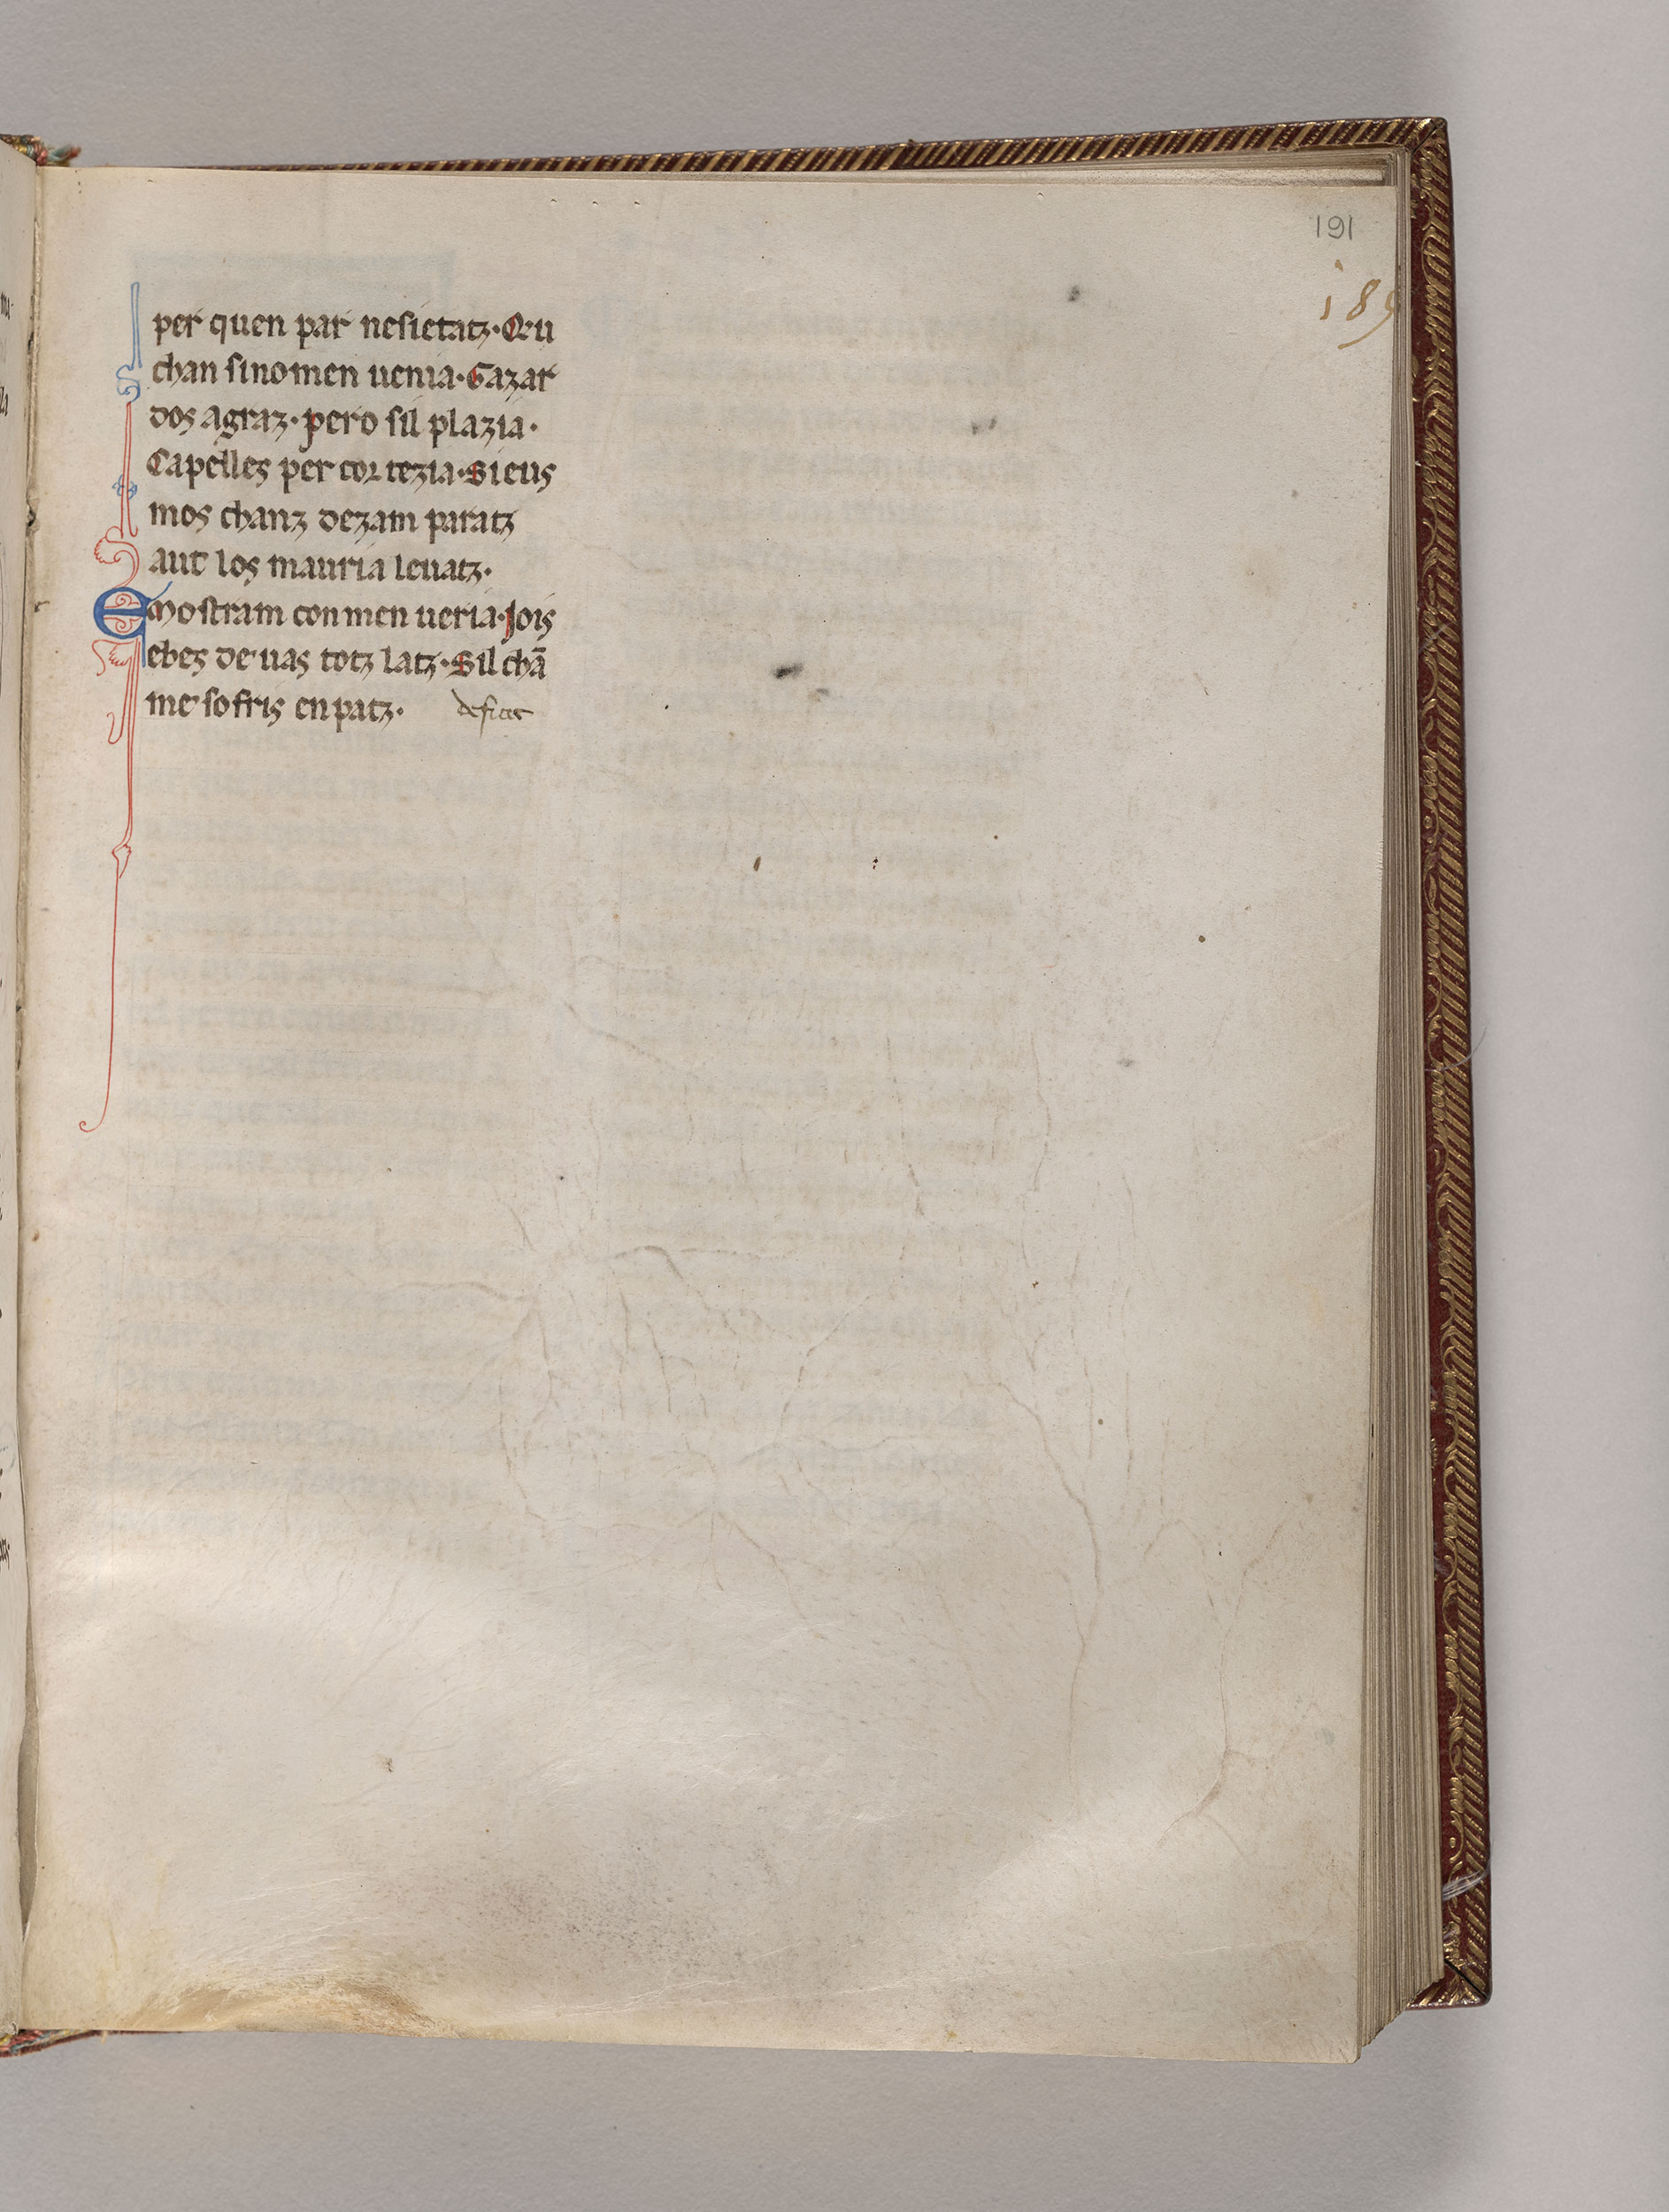 191
189
per quen par nesietatz· Qeu
chan sino men uenia· Gazar
dos agraz· pero sil plazia·
Capelles per cortezia· Si eus
mos chanz dezam paratz
aut los mauria leuatz·
Emostram con men ueria· Jois
ebes de uas totz latz· Sil chā
me sofris en patz· deficit